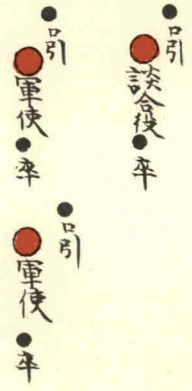 口引
談合役
卒
口引
軍使
卒
口引
軍使
卒